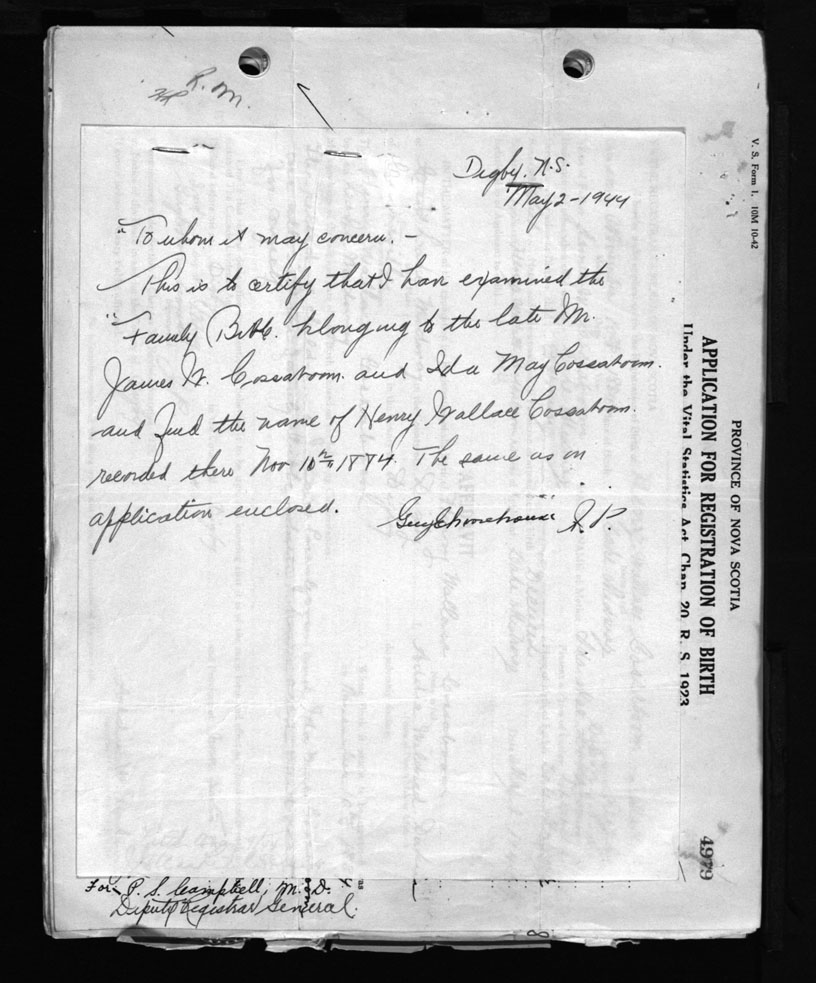 R. M.
Digby. N.S.
May 2 - 1944
"To whom it may concern. -
This is to certify that I have examined the
"Family Bible. belonging to the late Mr.
James W. Cossaboom. and Ida May Cossaboom.
and find the name of Henry Wallace Cossaboom.
recorded there Nov 10th 1884. The same as on
application enclosed.
J. P.
For P. S. Campbell, M. D.
Deputy Registrar General.
V. S. Form 1. 10M 10-42
PROVINCE OF NOVA SCOTIA
APPLICATION FOR REGISTRATION OF BIRTH
Under the Vital Statistics Act, Chap. 20, R. S. 1923
4979